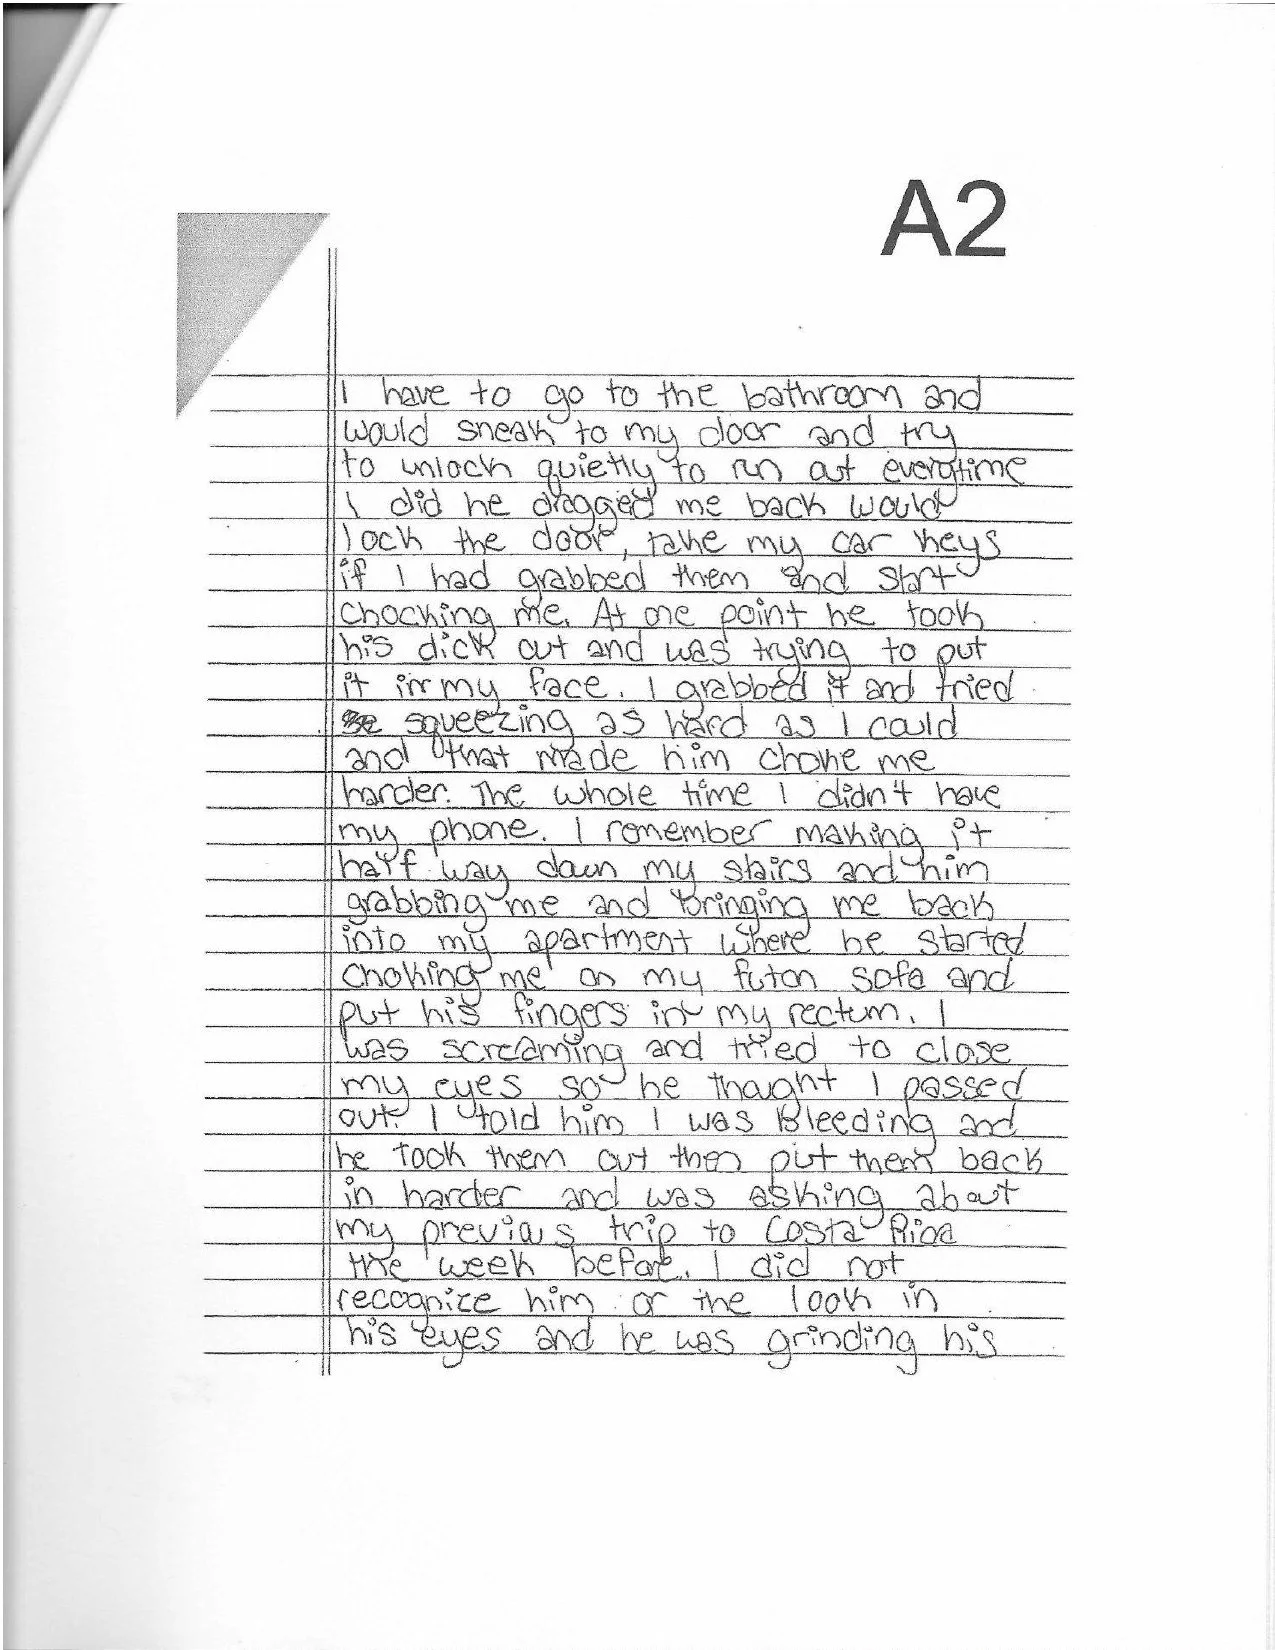 A2
I have to go to the bathroom and
would sneak to my door and try
to unlock quietly to run out everytime
I did he dragged me back would
lock the door, take my car keys
if I had grabbed them and start
chocking me. At one point he took
his dick out and was trying to put
it in my face. I grabbed it and tried
squeezing as hard as I could
and that made him choke me
harder. The whole time I didn't have
my phone. I remember making it
half way down my stairs and him
grabbing me and bringing me back
into my apartment where he started
choking me on my futon sofa and
put his fingers in my rectum. I
was screaming and tried to close
my eyes so he thought I passed
out. I told him I was Bleeding and
he took them out then put them back
in harder and was asking about
my previous trip to Costa Rica
the week before. I did not
reccognize him or the look in
his eyes and he was grinding his